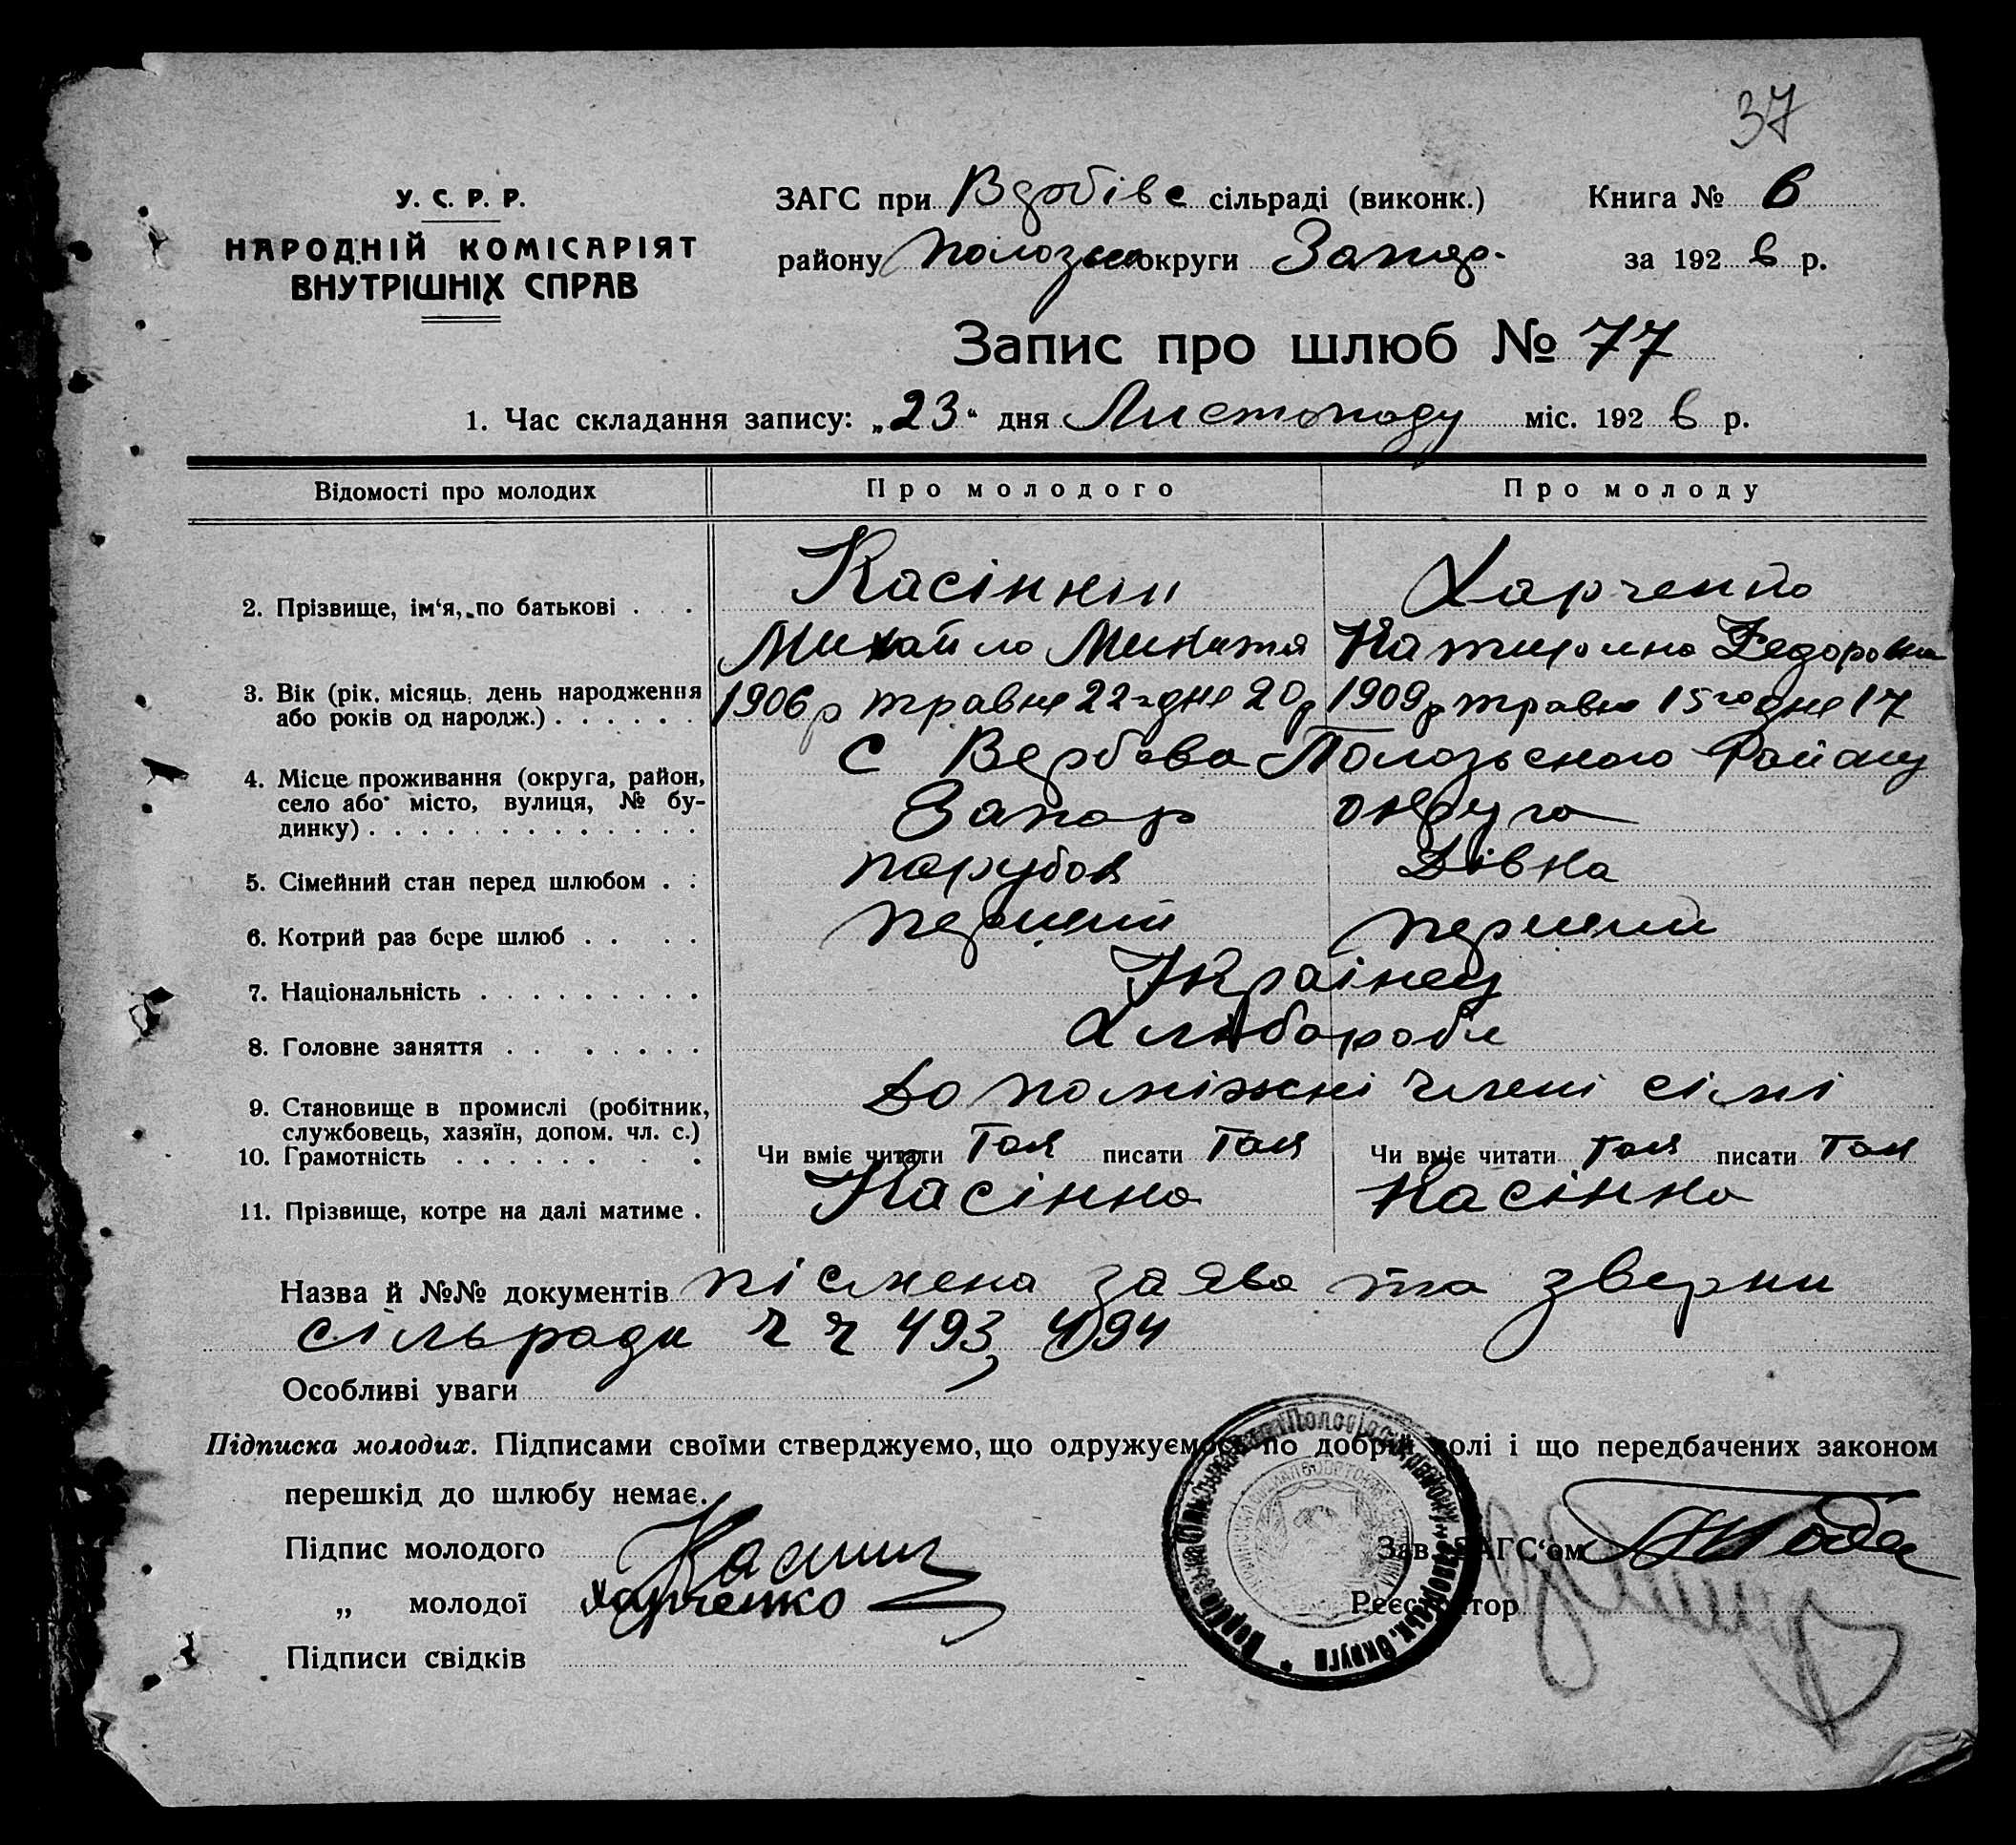 37
У. С. Р. Р.
НАРОДНІЙ КОМІСАРІЯТ
ВНУТРІШНІХ СПРАВ
ЗАГС при Вдобівс сільраді (виконк.)
Книга № 6
району Полозьк округи Запор.
за 192 6 р.
Запис про шлюб № 77
1. Час складання запису: „23“ дня Листопаду міс. 192 6 р.
Відомості про молодих
Про молодого
Про молоду
2. Прізвище, ім'я, по батькові . . .
Касінкін
Харченко
Михайло Микитя
Катирина Федоровна
3. Вік (рік, місяць, день народження
або років од народж.) . . . . . .
1906 р травня 22 дня 20 р
1909 р травня 15го дня 17
4. Місце проживання (округа, район,
село або місто, вулиця, № бу-
динку) . . . . . . . . . . . . . .
С Вербова Полозьського Району
Запор округа
5. Сімейний стан перед шлюбом . .
парубок
Дівка
6. Котрий раз бере шлюб . . . .
перший
перший
7. Національність . . . . . . . . .
Українец
8. Головне заняття . . . . . . .
Хліборобе
9. Становище в промислі (робітник,
службовець, хазяїн, допом. чл. с.)
Допоміжні члені сімі
10. Грамотність . . . . . . . .
Чи вміє читати Так писати Так
Чи вміє читати Так писати Так
11. Прізвище, котре на далі матиме .
Касінко
Касінко
Назва й №№ документів пісмена заява та
сільради ч ч 493, 494
Особливі уваги
Підписка молодих. Підписами своїми стверджуємо, що одружуємось по добрій волі і що передбачених законом
перешкід до шлюбу немає.
Підпис молодого
Зав. ЗАГС'ом
„ молодої Харченко
Реєстратор
Підписи свідків